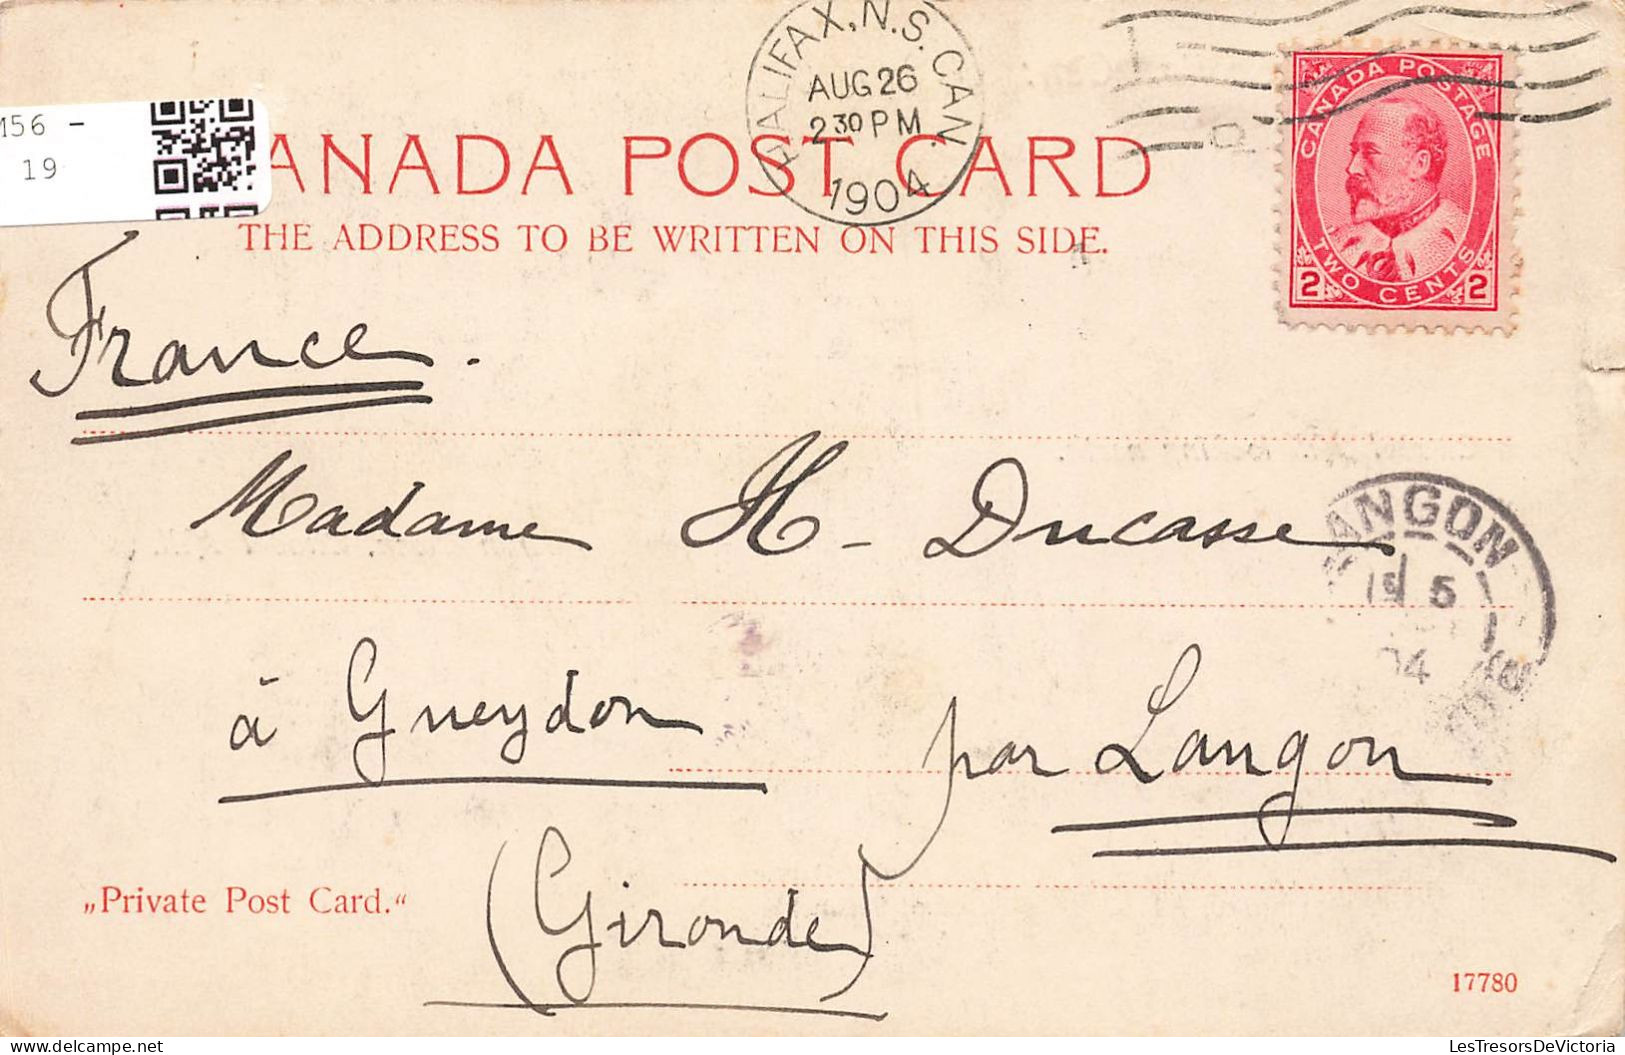 HALIFAX, N.S. CAN.
AUG 26
2 30 PM
1904
CANADA POSTAGE
TWO CENTS
2 2
M56 -
19
CANADA POST CARD
THE ADDRESS TO BE WRITTEN ON THIS SIDE.
France.
Madame H- Ducasse
LANGON
5
04
à Gueydon par Langon
(Gironde)
„Private Post Card.“
17780
delcampe.net
LesTresorsDeVictoria